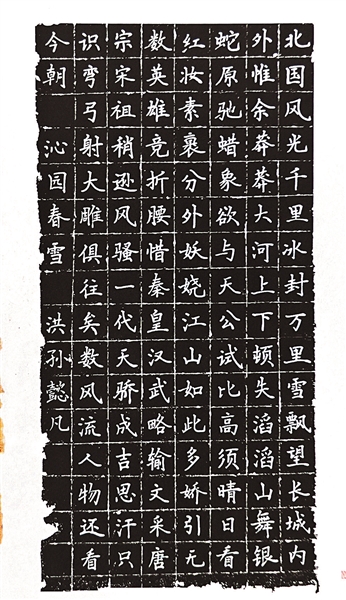 北国风光千里冰封万里雪飘望长城内
外惟余莽莽大河上下顿失滔滔山舞银
蛇原驰蜡象欲与天公试比高须晴日看
红妆素裹分外妖娆江山如此多娇引无
数英雄竞折腰惜秦皇汉武略输文采唐
宗宋祖稍逊风骚一代天骄成吉思汗只
识弯弓射大雕俱往矣数风流人物还看
今朝 沁园春雪 洪孙懿凡